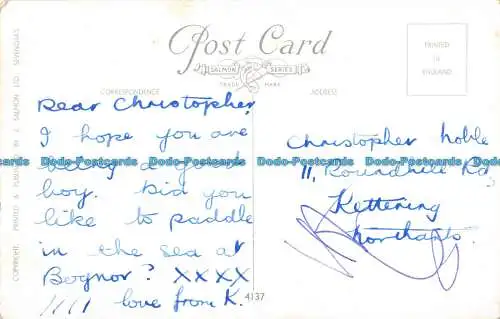 Post Card
SALMON SERIES
TRADE MARK
CORRESPONDENCE
ADDRESS
PRINTED
IN
ENGLAND
COPYRIGHT. PRINTED & PUBLISHED BY J. SALMON LTD. SEVENOAKS
Dear Christopher,
I hope you are
being a good
boy. Did you
like to paddle
in the sea at
Bognor? XXXX
//// love from K.
4137
Christopher Noble
11, Roundhill Rd
Kettering
Northants.
Dodo-Postcards Dodo-Postcards Dodo-Postcards Dodo-Postcards Dodo-Postcards